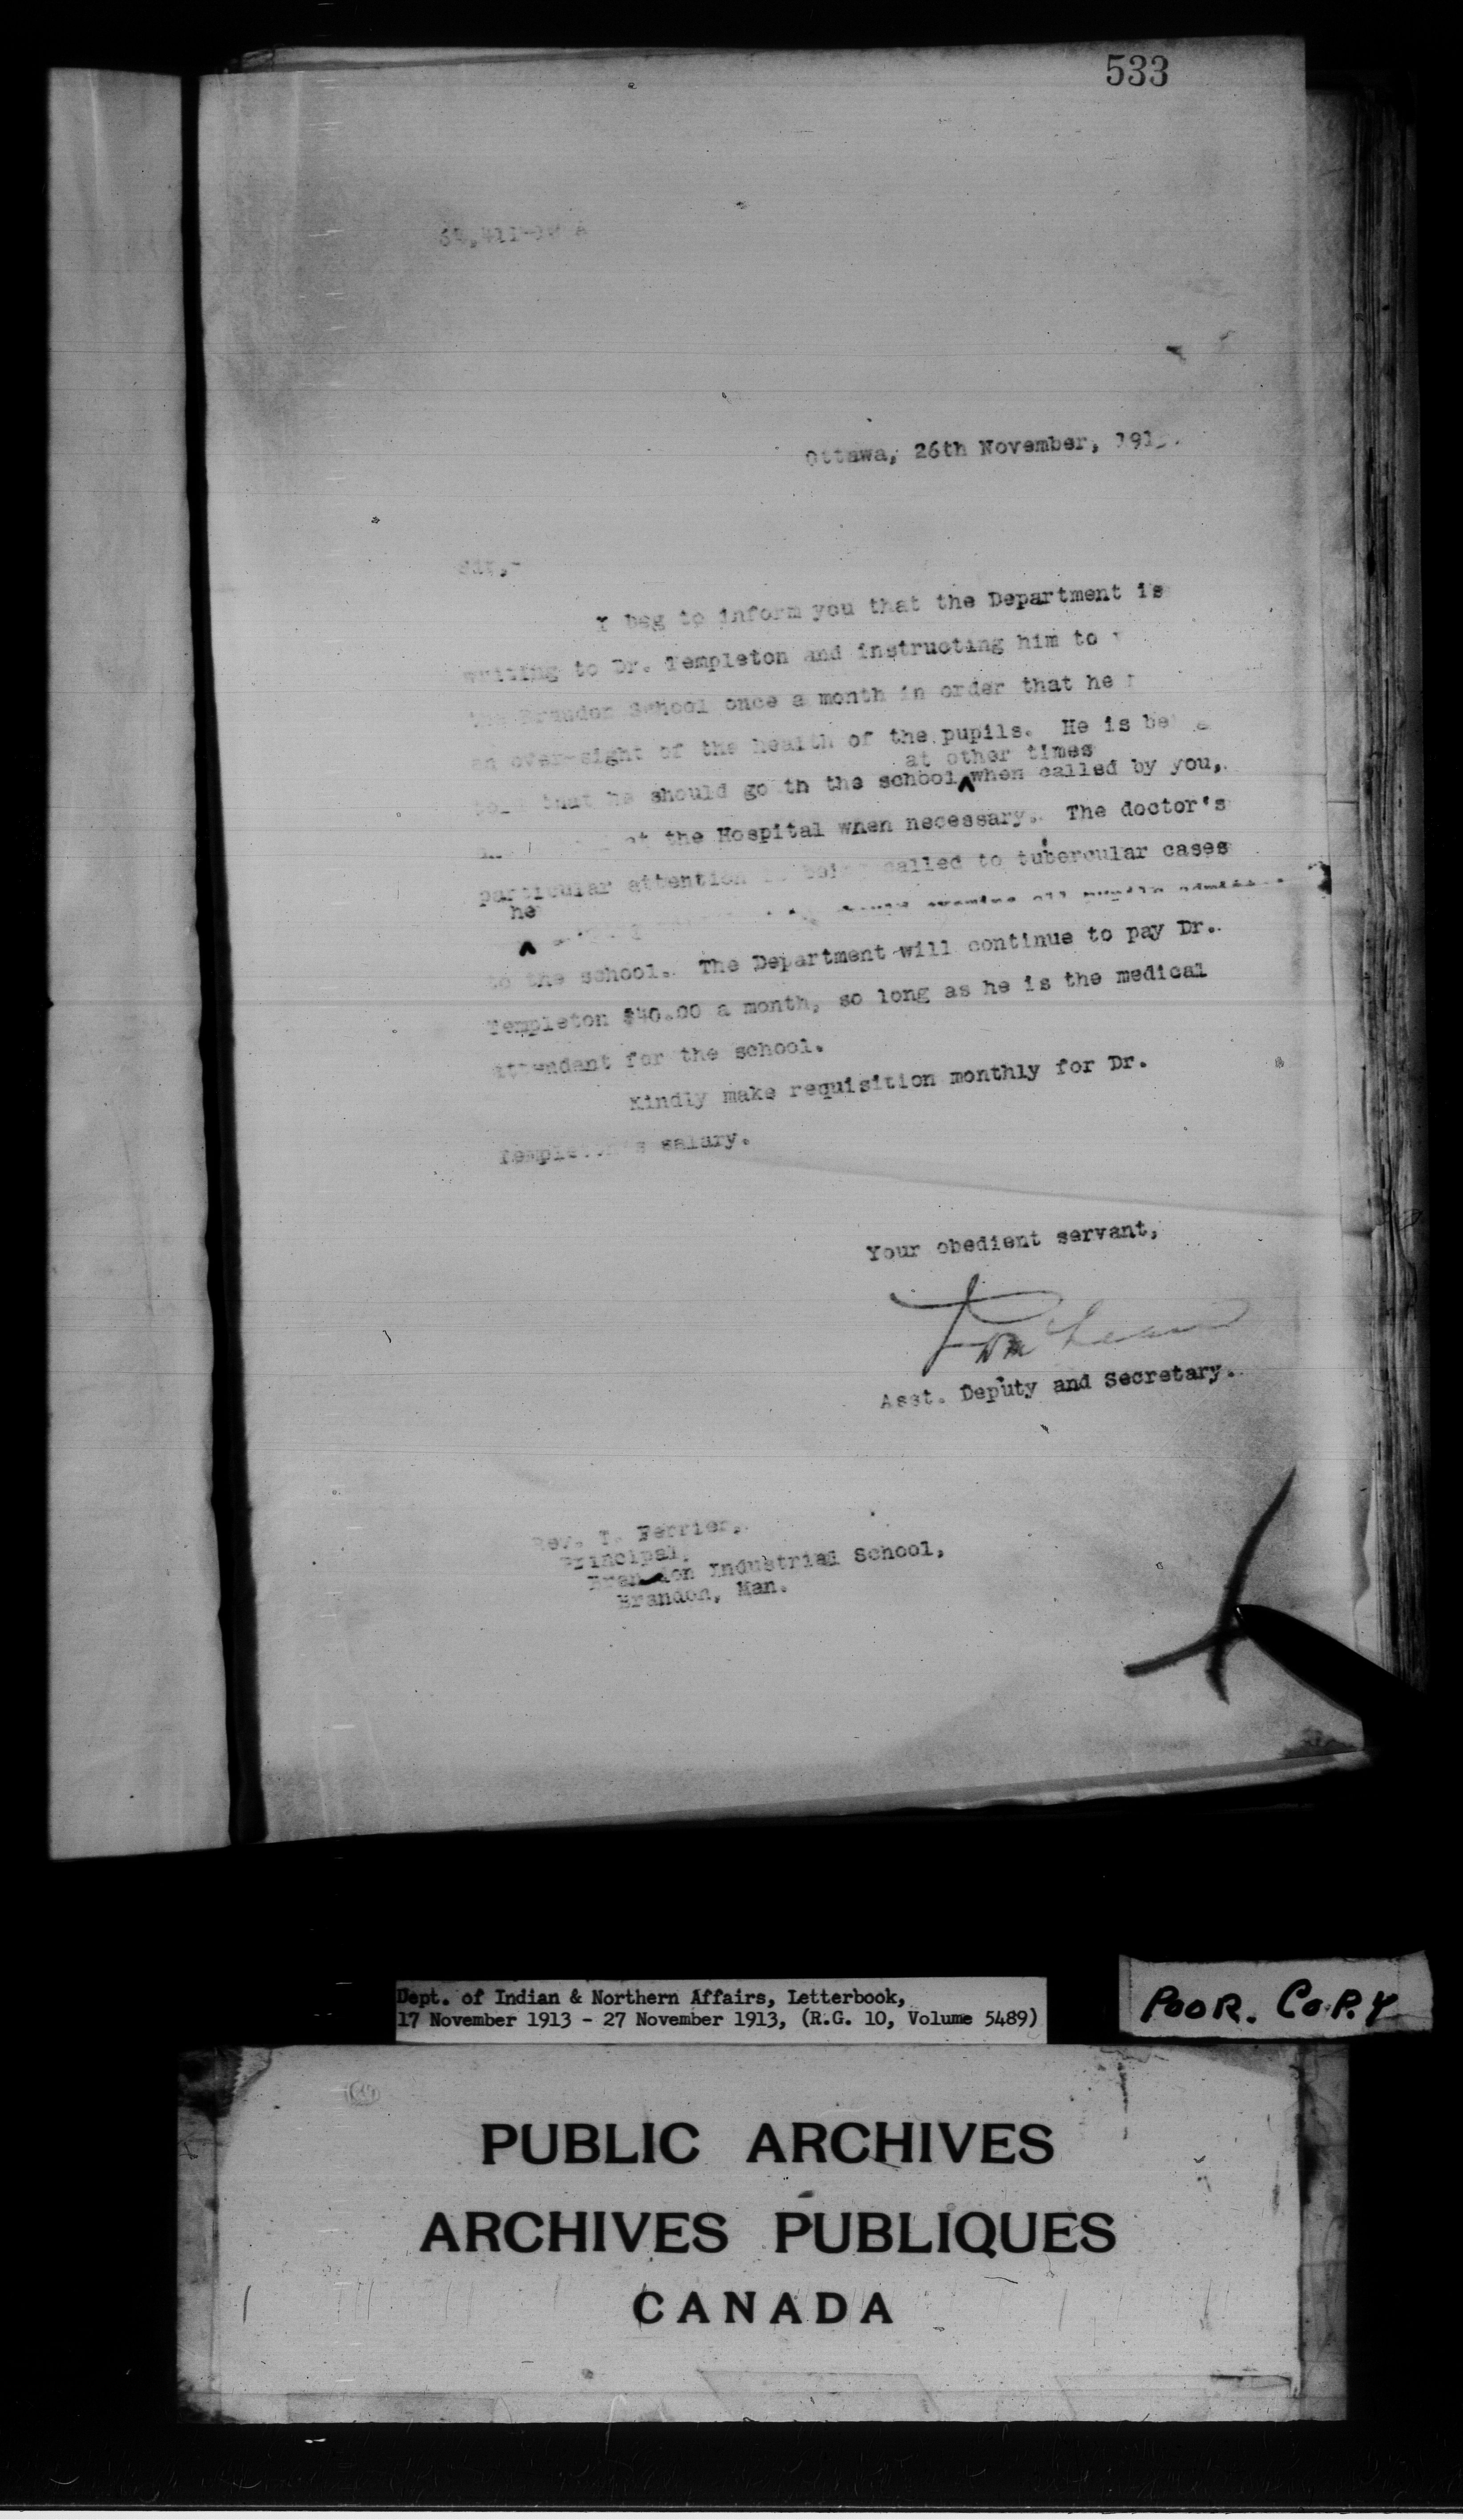 533
Ottawa, 26th November, 191
Sir,-
I beg to inform you that the Department is
writing to Dr. Templeton and instructing him to
the Brandon School once a month in order that he
an over-sight of the health of the pupils. He is
at other times
that he should go th the school ^ when called by you,
at the Hospital when necessary. The doctor's
particular attention is being called to tubercular cases
he
^ should examine all pupils admitted
to the school. The Department will continue to pay Dr.
Templeton $40.00 a month, so long as he is the medical
attendant for the school.
Kindly make requisition monthly for Dr.
Templeton's salary.
Your obedient servant,
Asst. Deputy and Secretary.
Rev. T. Ferrier,
Principal,
Brandon Industrial School,
Brandon, Man.
Dept. of Indian & Northern Affairs, Letterbook,
17 November 1913 - 27 November 1913, (R.G. 10, Volume 5489)
POOR. COPY
PUBLIC ARCHIVES
ARCHIVES PUBLIQUES
CANADA